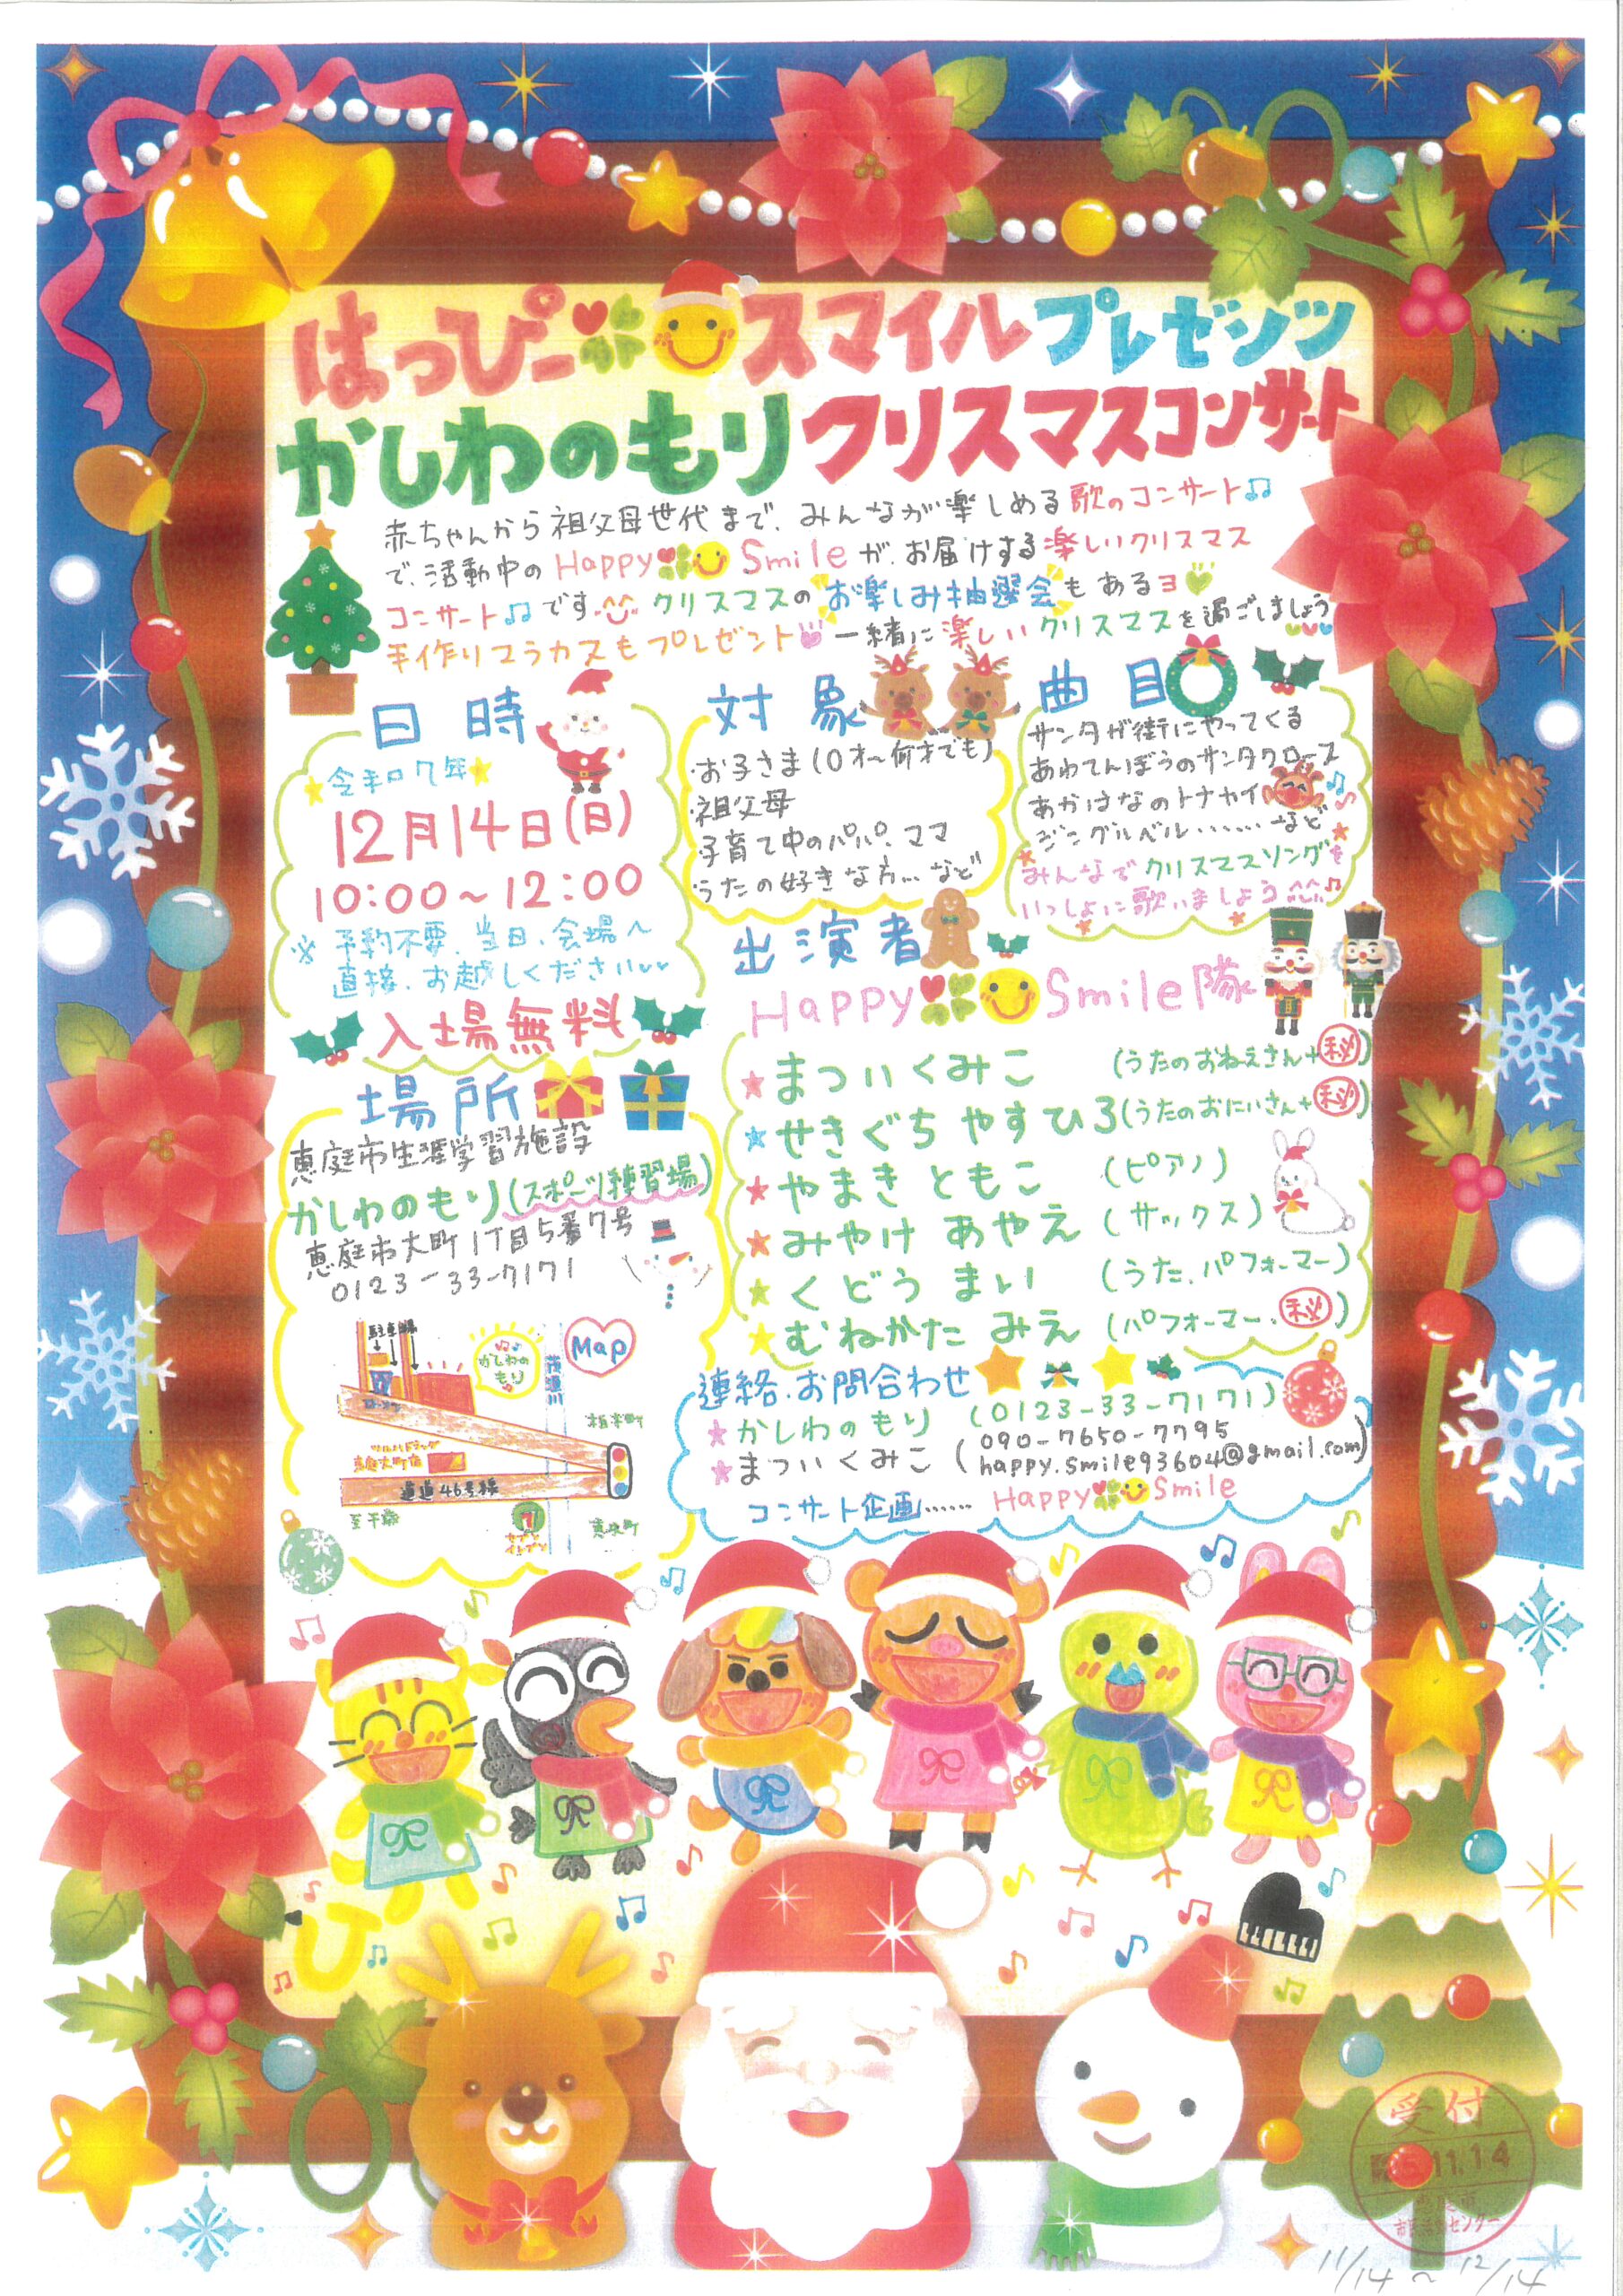 はっぴースマイルプレゼンツ
かしわのもりクリスマスコンサート
赤ちゃんから祖父母世代まで、みんなが楽しめる歌のコンサート♫
で、活動中のHappy Smileが、お届けする楽しいクリスマス
コンサート♫です。クリスマスのお楽しみ抽選会もあるヨ
手作りマラカスもプレゼント 一緒に楽しいクリスマスを過ごしましょう
日時
令和7年
12月14日(日)
10:00~12:00
※予約不要、当日、会場へ
直接、お越しください
入場無料
対象
・お子さま(0才~何才でも)
・祖父母
・子育て中のパパ、ママ
・うたの好きな方…など
曲目
サンタが街にやってくる
あわてんぼうのサンタクロース
あかはなのトナカイ
ジングルベル……など
みんなでクリスマスソングを
いっしょに歌いましょう
出演者
Happy Smile隊
★まつい くみこ (うたのおねえさん+㊙)
★せきぐち やすひろ (うたのおにいさん+㊙)
★やまき ともこ (ピアノ)
★みやけ あやえ (サックス)
★くどう まい (うた、パフォーマー)
★むねかた みえ (パフォーマー・㊙)
場所
恵庭市生涯学習施設
かしわのもり(スポーツ練習場)
恵庭市大町1丁目5番7号
0123-33-7171
Map
駐車場
かしわの
もり
茂漁川
柏木町
ツルハドラッグ
恵庭大町店
道道46号線
至千歳
セブン
イレブン
恵み野
連絡・お問合わせ
★かしわのもり (0123-33-7171)
★まつい くみこ (090-7650-7795
happy.smile93604@gmail.com)
コンサート企画…… Happy Smile
受付
11.14
センター
11/14~12/14